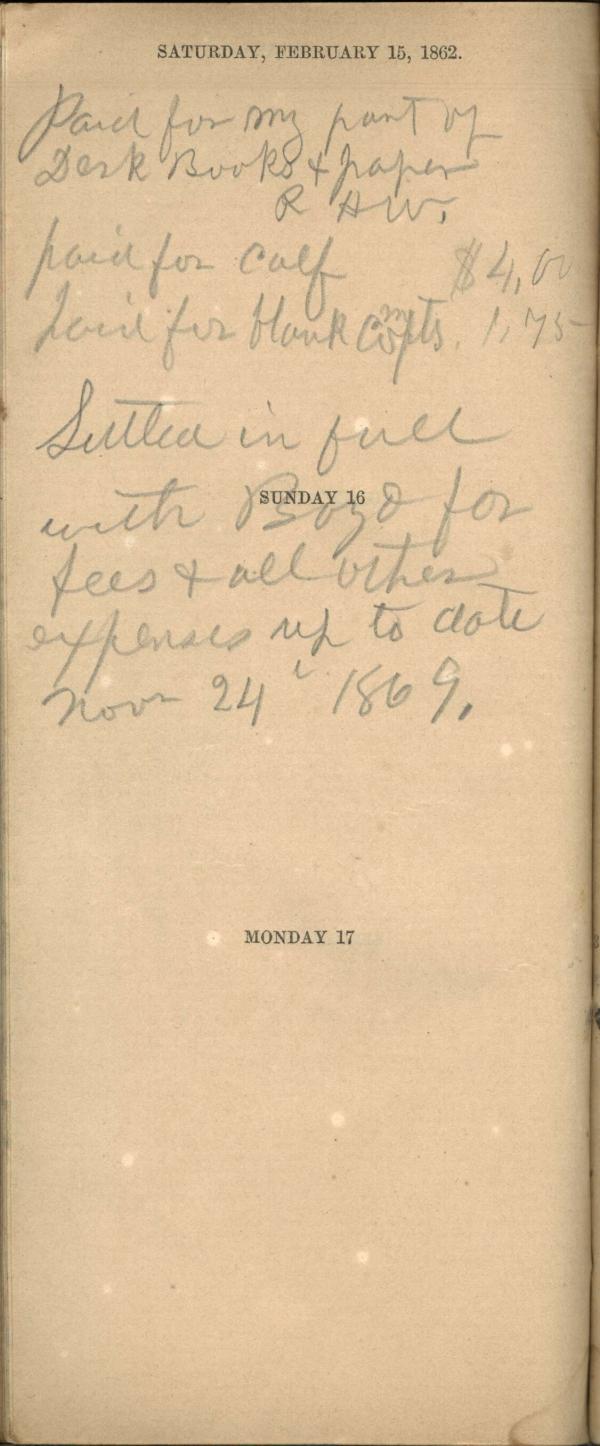 SATURDAY, FEBRUARY 15, 1862.
Paid for my part of
Desk Books & paper
R H W.
paid for calf $4,00
paid for blank compts. 1,75
Settled in full
SUNDAY 16
with Boyd for
fees & all other
expenses up to date
Novr 24t 1869.
MONDAY 17